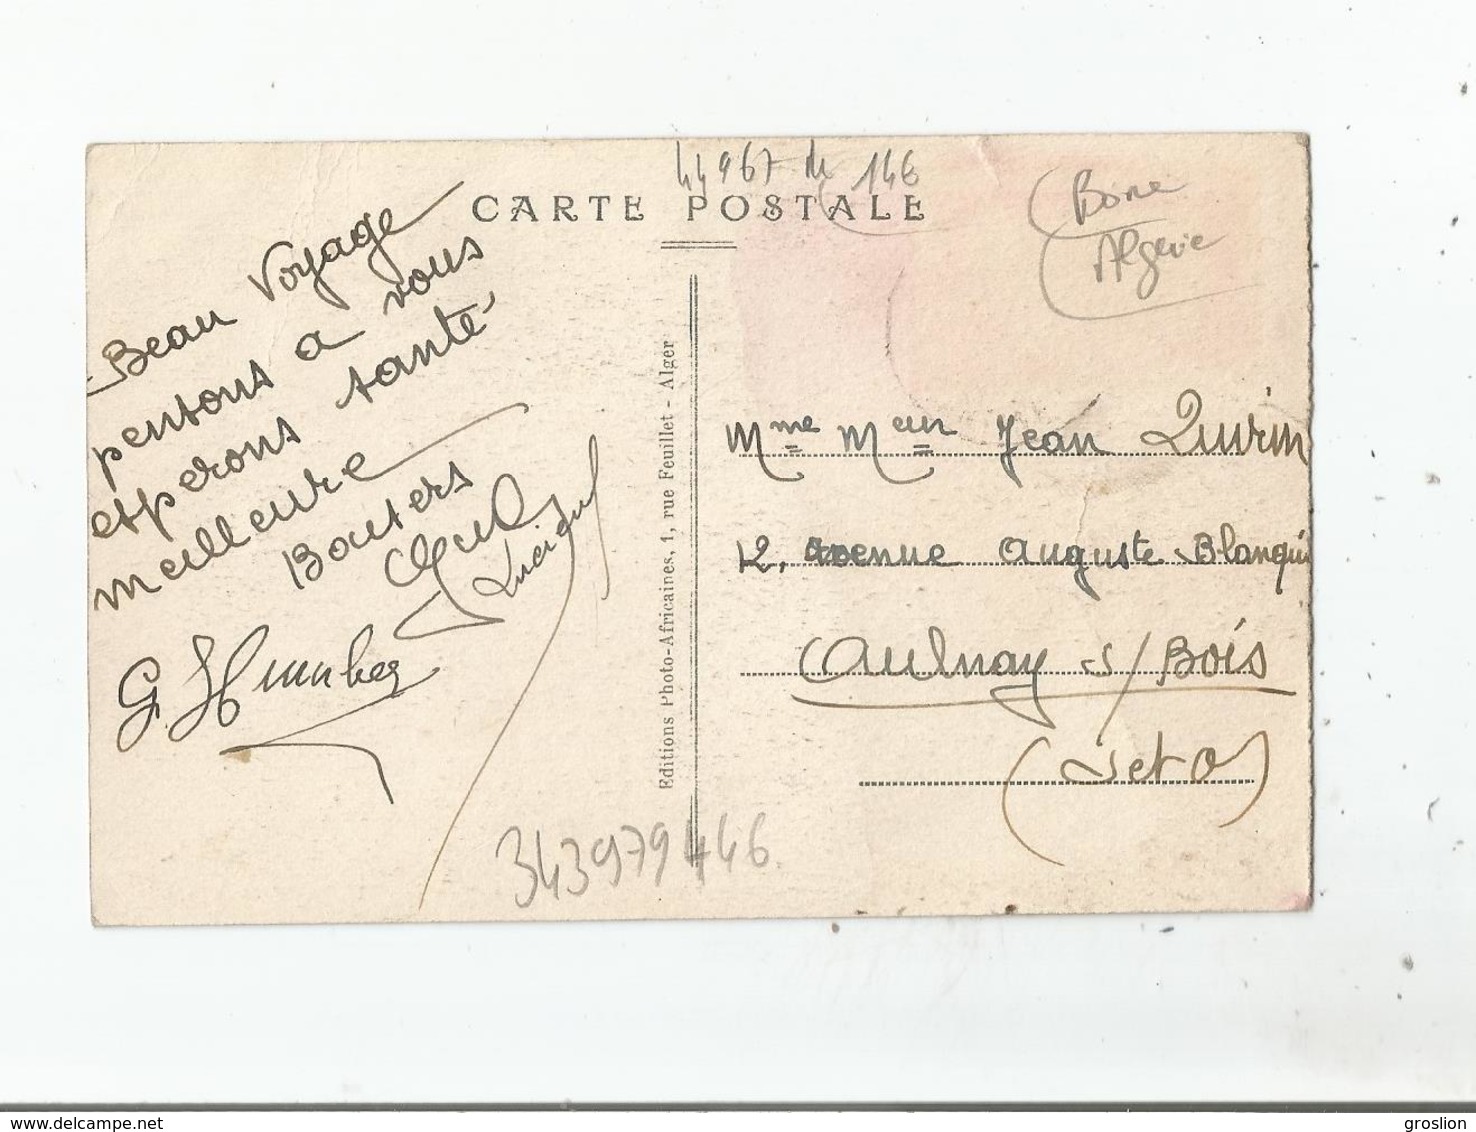 44967 M 146
CARTE POSTALE
Bône
Algérie
Beau Voyage
pensons a vous
esperons santé
meilleure
Baisers
Lucien
G. Humbert
Editions Photo-Africaines, 1, rue Feuillet - Alger
Mme Meur Jean Quirin
12, avenue Auguste Blanqui
Aulnay s/Bois
(S et O)
343979446
www.delcampe.net
groslion